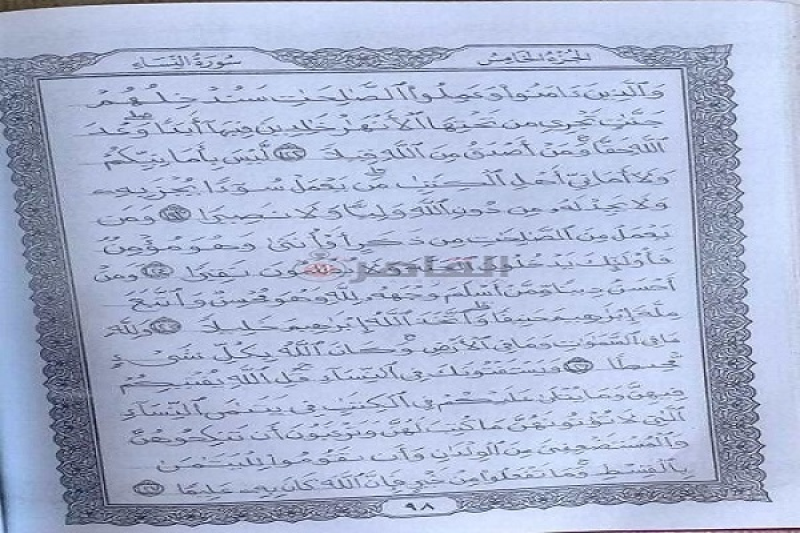 الجزء الخامس
سورة النساء
والذين ءامنوا وعملوا الصالحات سندخلهم
جنات تجري من تحتها الأنهر خالدين فيها أبدا وعد
الله حقا ومن أصدق من الله قيلا ١٢٢ ليس بأمانيكم
ولا أماني أهل الكتاب من يعمل سوءا يجز به
ولا يجد له من دون الله وليا ولا نصيرا ١٢٣ ومن
يعمل من الصالحات من ذكر أو أنثى وهو مؤمن
فأولئك يدخلون ولا يظلمون نقيرا ١٢٤ ومن
القاهرة
أحسن دينا ممن أسلم وجهه لله وهو محسن واتبع
ملة إبرهيم حنيفا واتخذ الله إبرهيم خليلا ١٢٥ ولله
ما في السموت وما في الأرض وكان الله بكل شيء
محيطا ١٢٦ ويستفتونك في النساء قل الله يفتيكم
فيهن وما يتلى عليكم في الكتب في يتمى النساء
التي لا تؤتونهن ما كتب لهن وترغبون أن تنكحوهن
والمستضعفين من الولدان وأن تقوموا لليتمى
بالقسط وما تفعلوا من خير فإن الله كان به عليما ١٢٧
٩٨